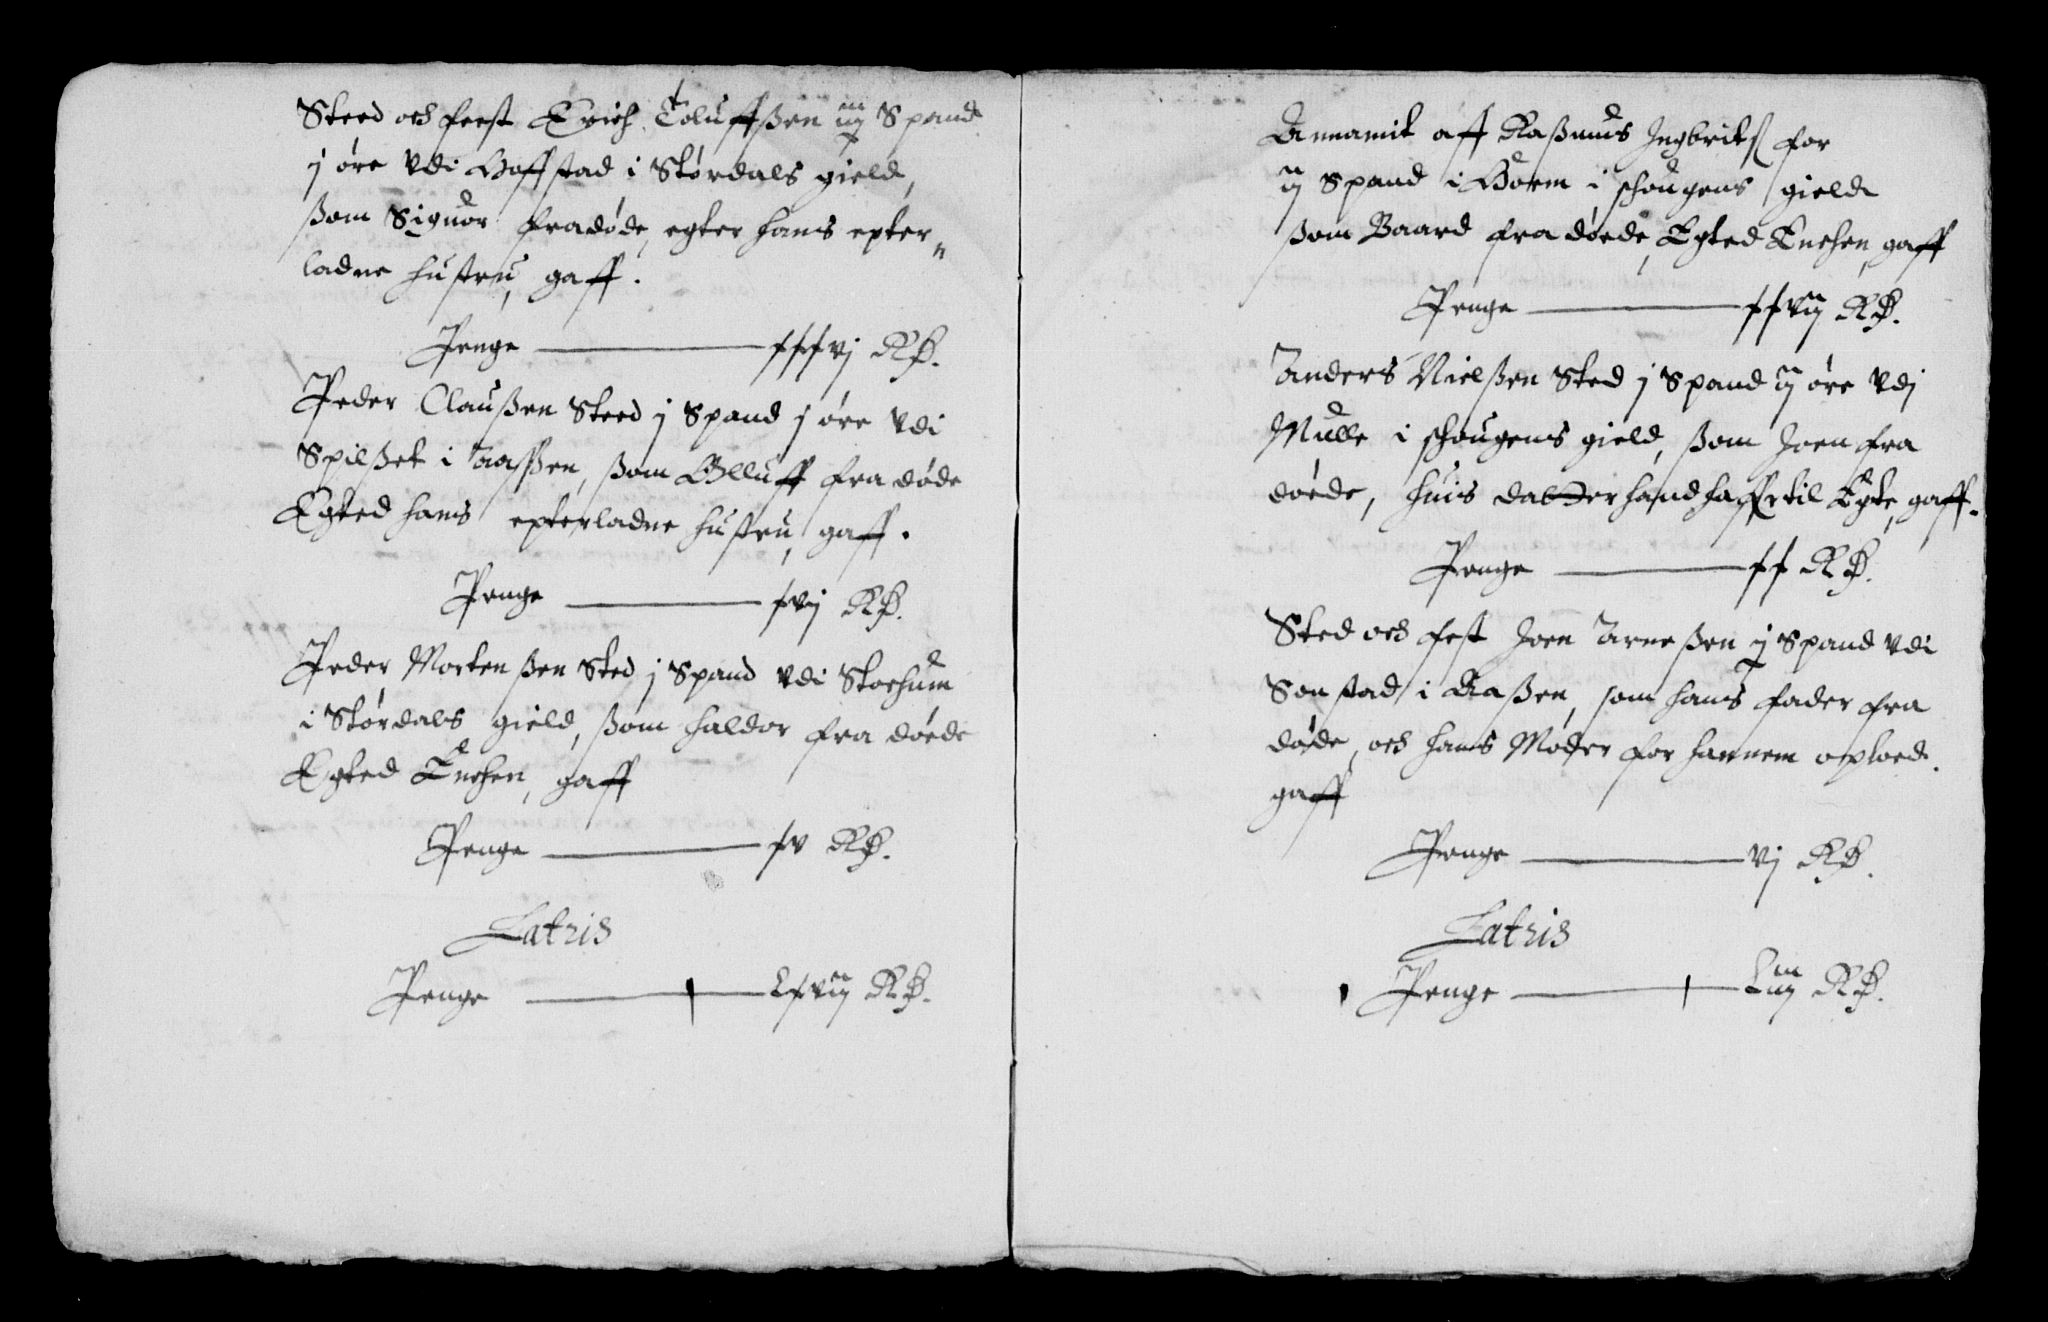 Steed och feest Erich Toluffßen iiij Spand
j øre Vdi Hoffstad i Størdals gield,
ßom Siguor fradøde, egter hans epter„
ladne hustru, gaff.
Penge — xxxvj RD.
Peder Claußen Steed j Spand j øre Vdi
Spilßet i Aaßen, ßom Olluff fra døde
Egted hans epterladne hustru, gaff.
Penge — xvj RD.
Peder Mortenßen Sted j Spand Vdi Stochum
i Størdals gield, ßom haldor fra døede
Egted Enchen, gaff
Penge — xv RD.
Latris
Penge — Lxvij RD.
Annamit aff Raßmus Ingbritß for
ij Spand i Hoem i schougens gield
ßom Baard fra døede, Egted Enchen, gaff
Penge — xxvij RD.
Anders Nielßen Sted j Spand ij øre Vdj
Mulle i schougens gield, ßom Joen fra
døede, huis datter hand haffr til Egte, gaff.
Penge — xx RD.
Sted och fest Joen Arneßen j Spand Vdi
Sonstad i Aaßen, som hans fader fra
døde, och hans Moder for hannem oploed.
gaff
Penge — vj RD.
Latris
Penge — Liij RD.